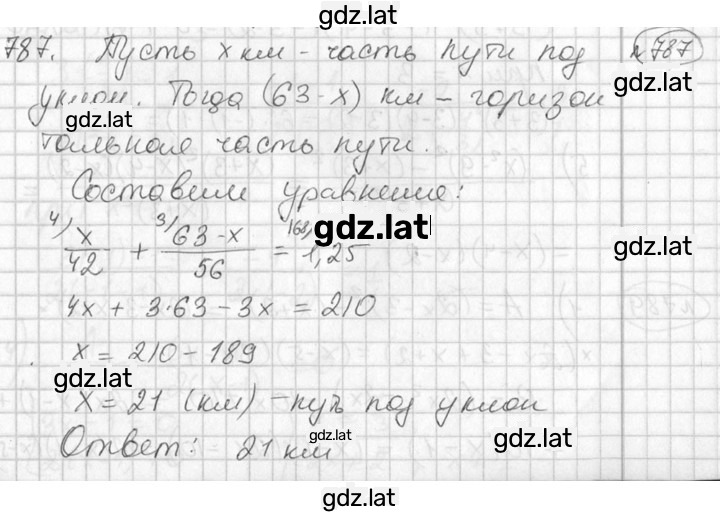 gdz.lat
787. Пусть x км – часть пути под
№787
уклон. Тогда (63-x) км – горизон
gdz.lat
тальная часть пути.
gdz.lat
Составим уравнение:
4) x/42 + 3) 63-x/56 = 168) 1,25
gdz.lat
gdz.lat
4x + 3·63 – 3x = 210
x = 210 – 189
gdz.lat
gdz.lat
x = 21 (км) – путь под уклон
gdz.lat
gdz.lat
Ответ: 21 км
gdz.lat